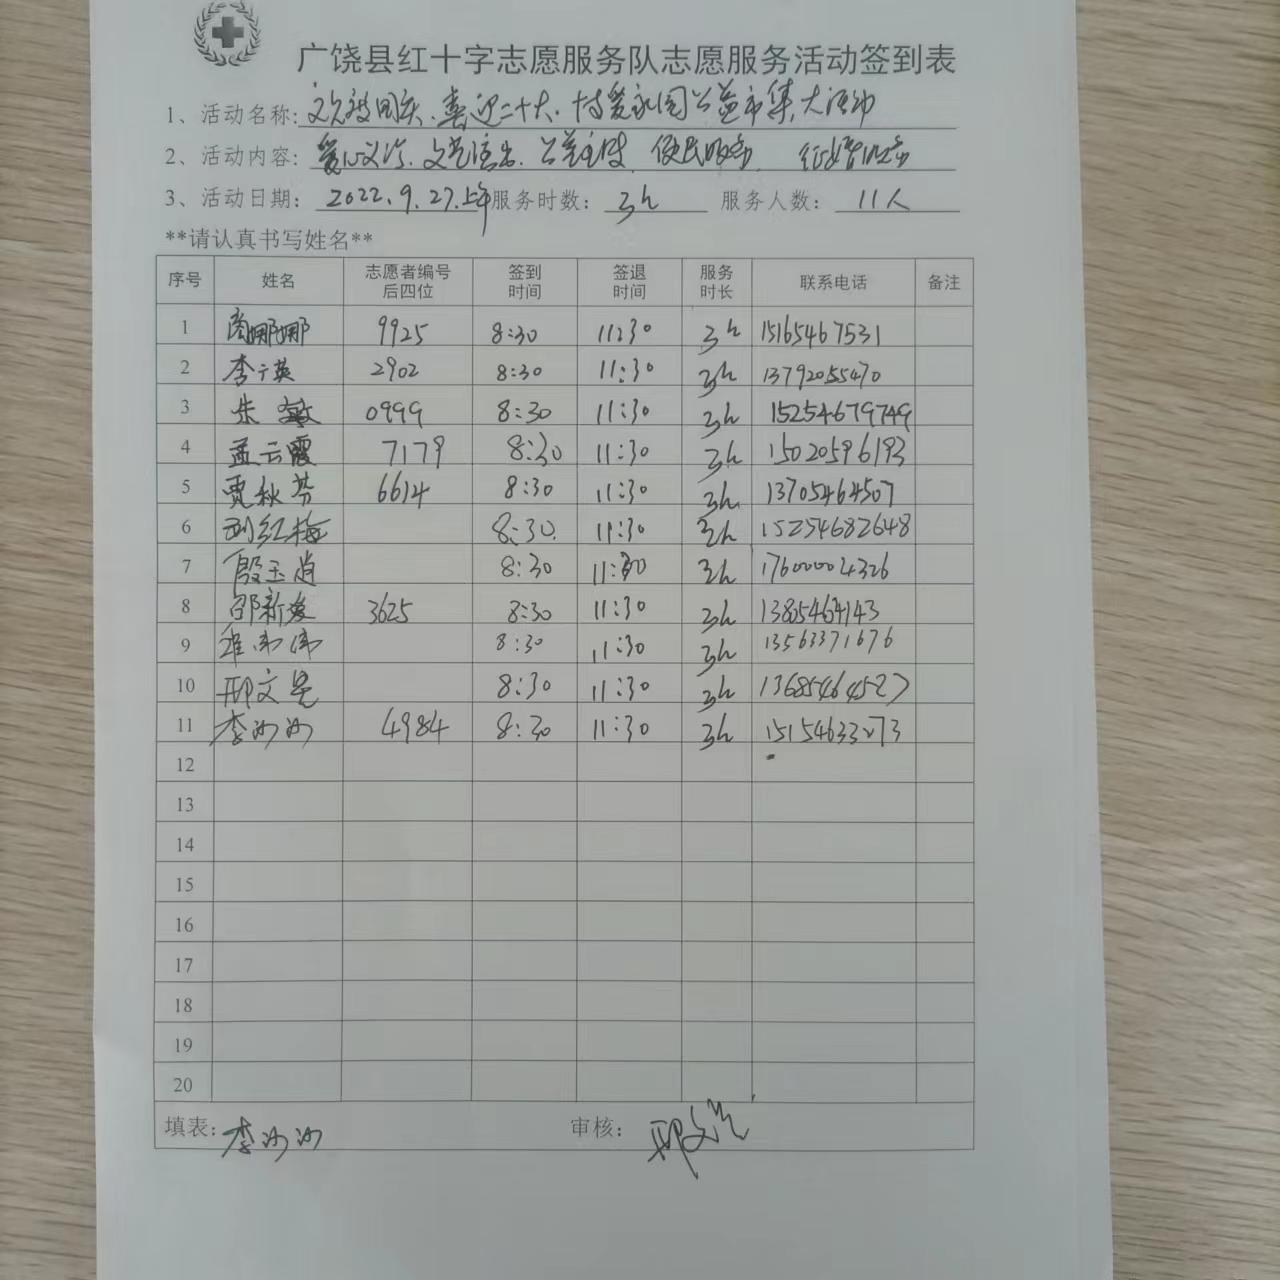 广饶县红十字志愿服务队志愿服务活动签到表
1、活动名称: 喜迎二十大、博爱家园公益市集大活动
2、活动内容: 爱心义诊、文艺演出、便民服务
3、活动日期: 2022.9.27.上午 服务时数: 3h 服务人数: 11人
**请认真书写姓名**
序号 姓名 志愿者编号后四位 签到时间 签退时间 服务时长 联系电话 备注
1 娜娜 9925 8:30 11:30 3h 15165467531
2 李英 2902 8:30 11:30 3h 13792055470
3 朱敏 0999 8:30 11:30 3h 15254679749
4 孟云霞 7179 8:30 11:30 3h 15020596193
5 贾秋芬 6614 8:30 11:30 3h 13705464507
6 刘红梅 8:30 11:30 3h 15254682648
7 殷玉 8:30 11:30 3h 17600004326
8 邵新爱 3625 8:30 11:30 3h 1385464143
9 伟伟 8:30 11:30 3h 13563371676
10 邢文 8:30 11:30 3h 13685464527
11 李沙沙 4984 8:30 11:30 3h 15154633273
12
13
14
15
16
17
18
19
20
填表: 李沙沙 审核: 邢文